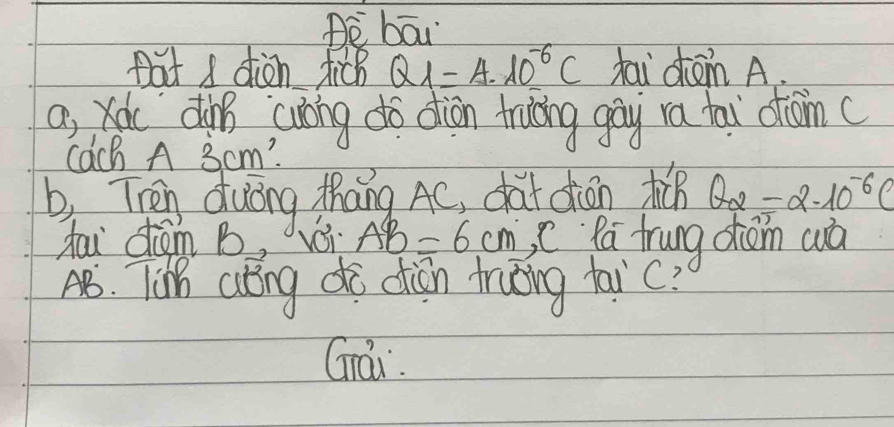 Đề bài
Đặt 1 điện tích Q1 = 4.10⁻⁶ C tại điểm A.
a, Xác định cường độ điện trường gây ra tại điểm C
cách A 3cm?
b, Trên đường thẳng AC, đặt điện tích Q2 = 2.10⁻⁶C
tại điểm B, với AB = 6 cm, C là trung điểm của
AB. Tính cường độ điện trường tại C?
Giải: